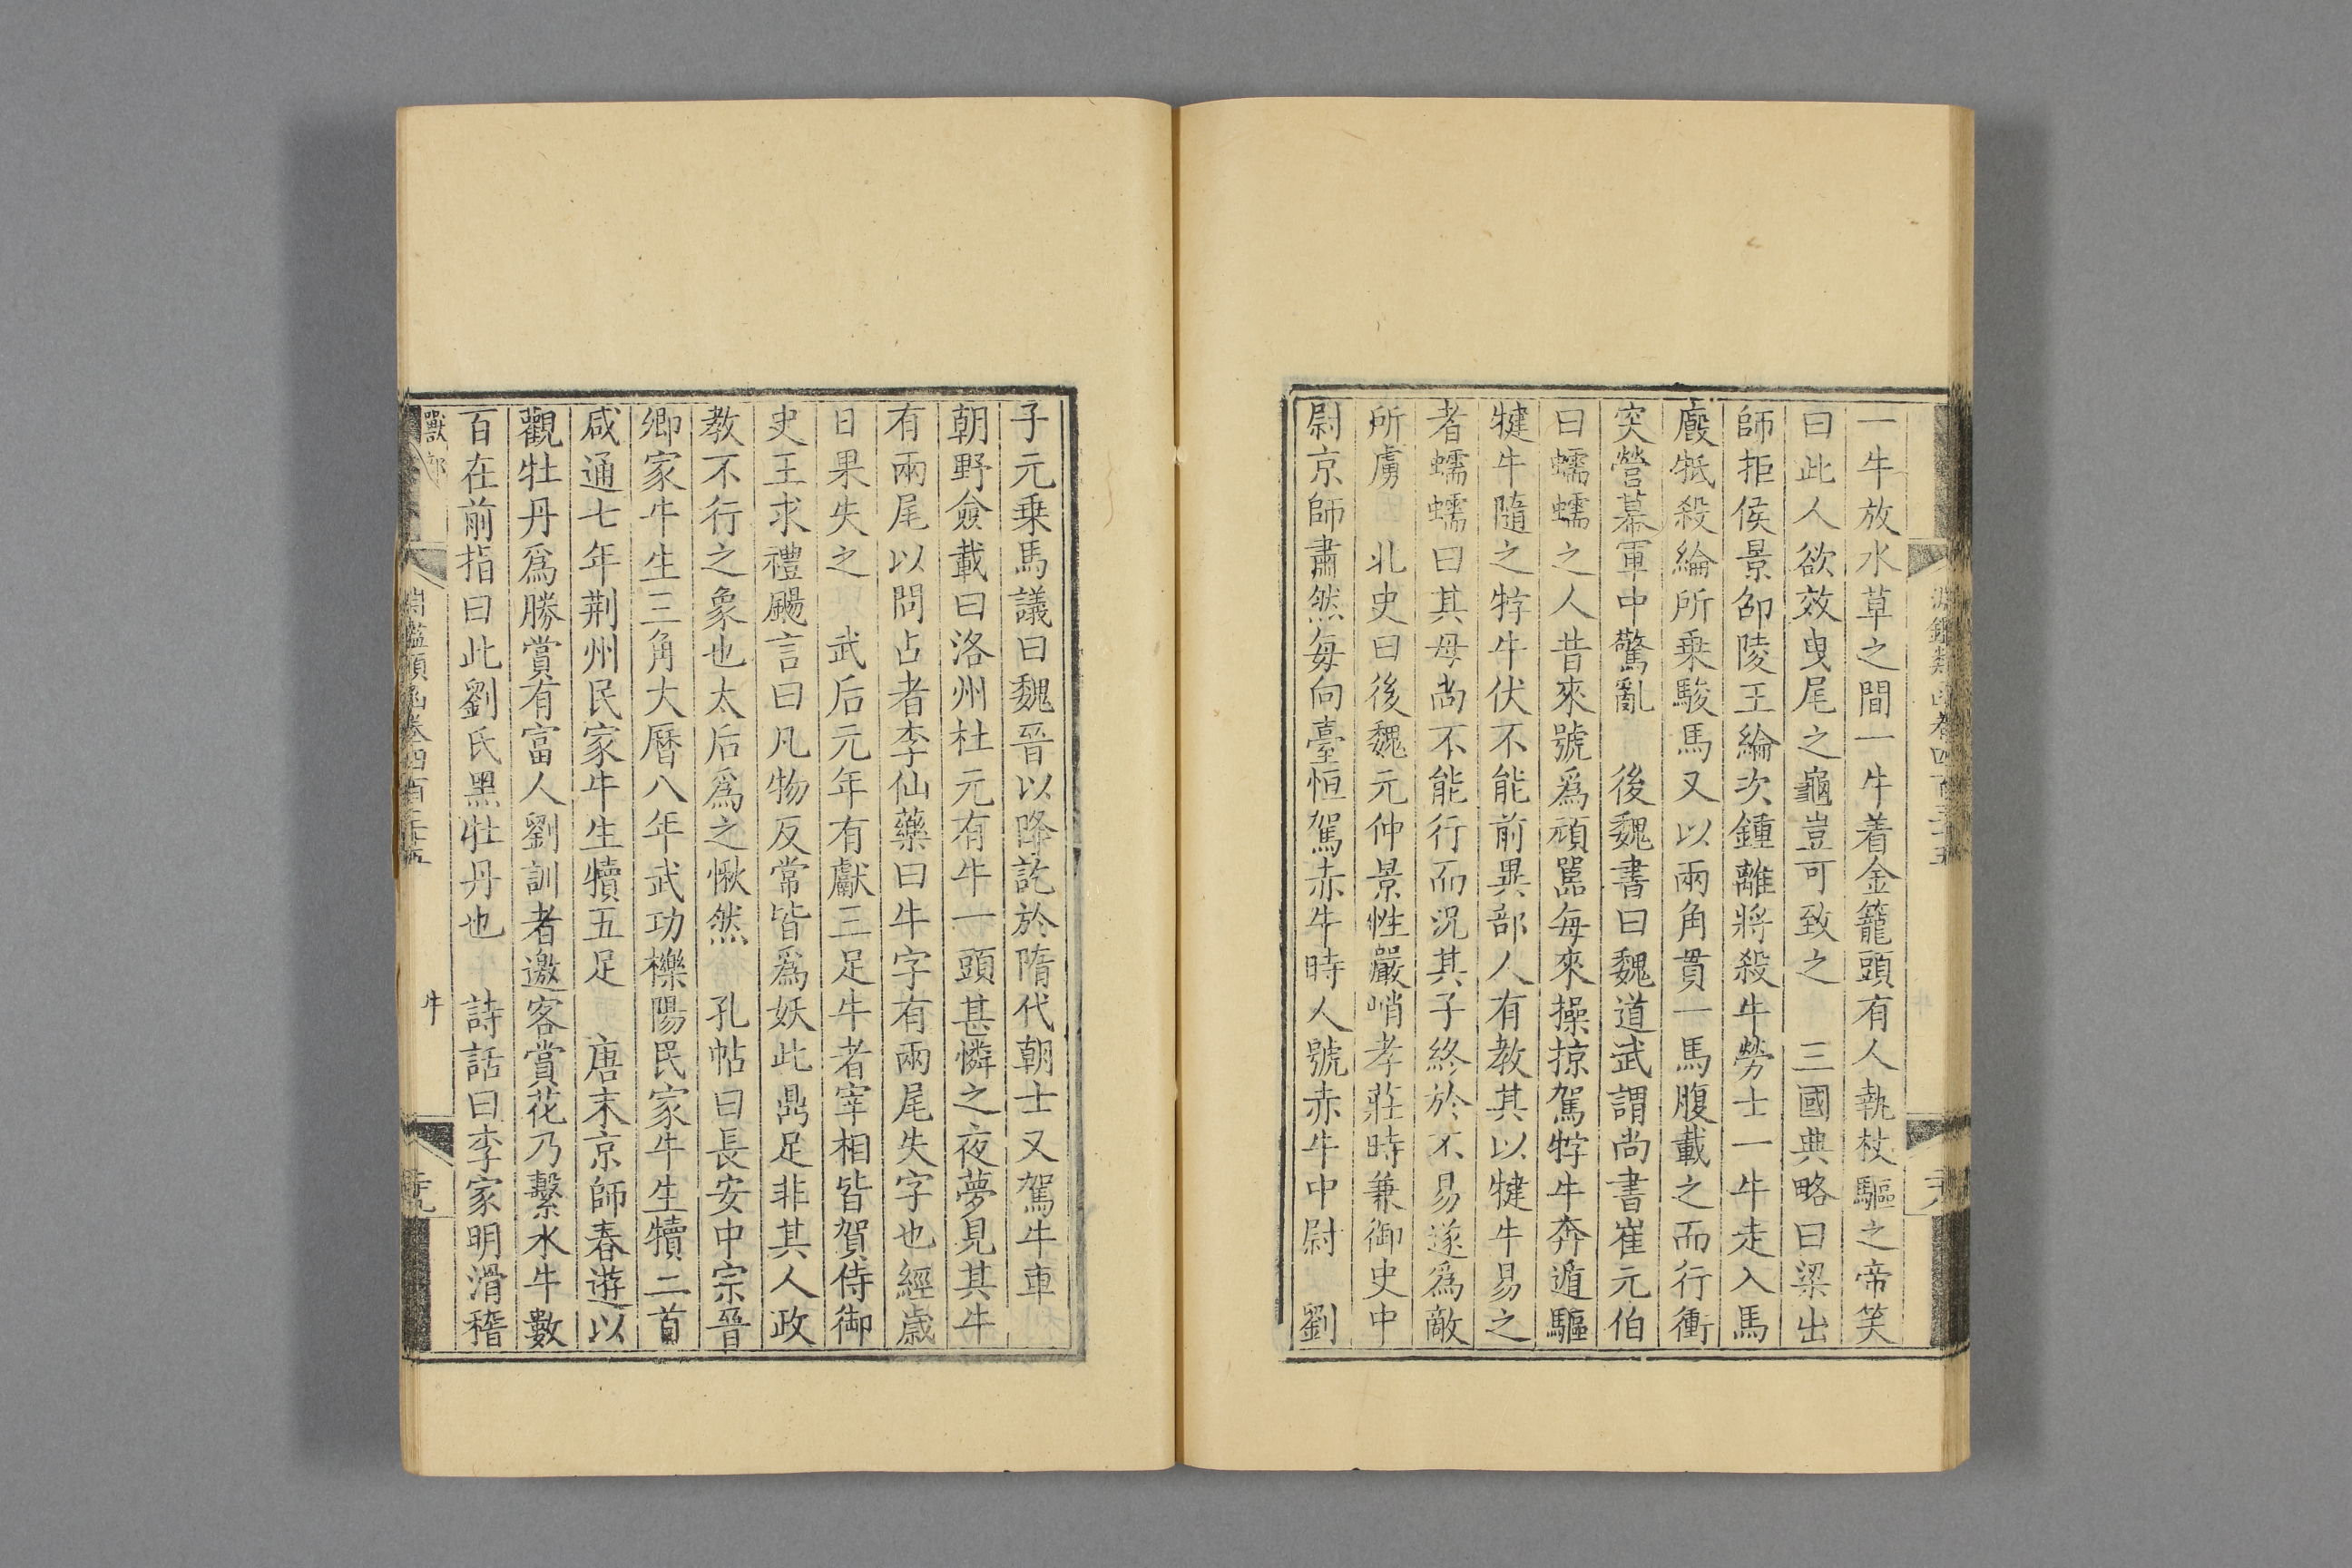 淵鑑類函卷四百三十五
一牛放水草之間一牛着金籠頭有人執杖驅之帝笑
曰此人欲效曳尾之龜豈可致之　三國典略曰梁出
師拒侯景邵陵王綸次鍾離將殺牛勞士一牛走入馬
廄牴殺綸所乗駿馬又以兩角貫一馬腹載之而行衝
突營幕軍中驚亂　後魏書曰魏道武謂尚書崔元伯
曰蠕蠕之人昔來號爲頑嚚每來操掠駕牸牛奔遁驅
犍牛隨之牸牛伏不能前異部人有教其以犍牛易之
者蠕蠕曰其母尚不能行而況其子終於不易遂爲敵
所虜　北史曰後魏元仲景性嚴峭孝莊時兼御史中
尉京師肅然每向臺恒駕赤牛時人號赤牛中尉　劉
子元乗馬議曰魏晉以降訖於隋代朝士又駕牛車
朝野僉載曰洛州杜元有牛一頭甚憐之夜夢見其牛
有兩尾以問占者李仙藥曰牛字有兩尾失字也經歲
日果失之　武后元年有獻三足牛者宰相皆賀侍御
史王求禮颺言曰凡物反常皆爲妖此鼎足非其人政
教不行之象也太后爲之愀然　孔帖曰長安中宗晉
卿家牛生三角大曆八年武功櫟陽民家牛生犢二首
咸通七年荆州民家牛生犢五足　唐末京師春遊以
觀牡丹爲勝賞有富人劉訓者邀客賞花乃繫水牛數
百在前指曰此劉氏黑牡丹也　詩話曰李家明滑稽
獸部　淵鑑類函卷四百三十五　牛